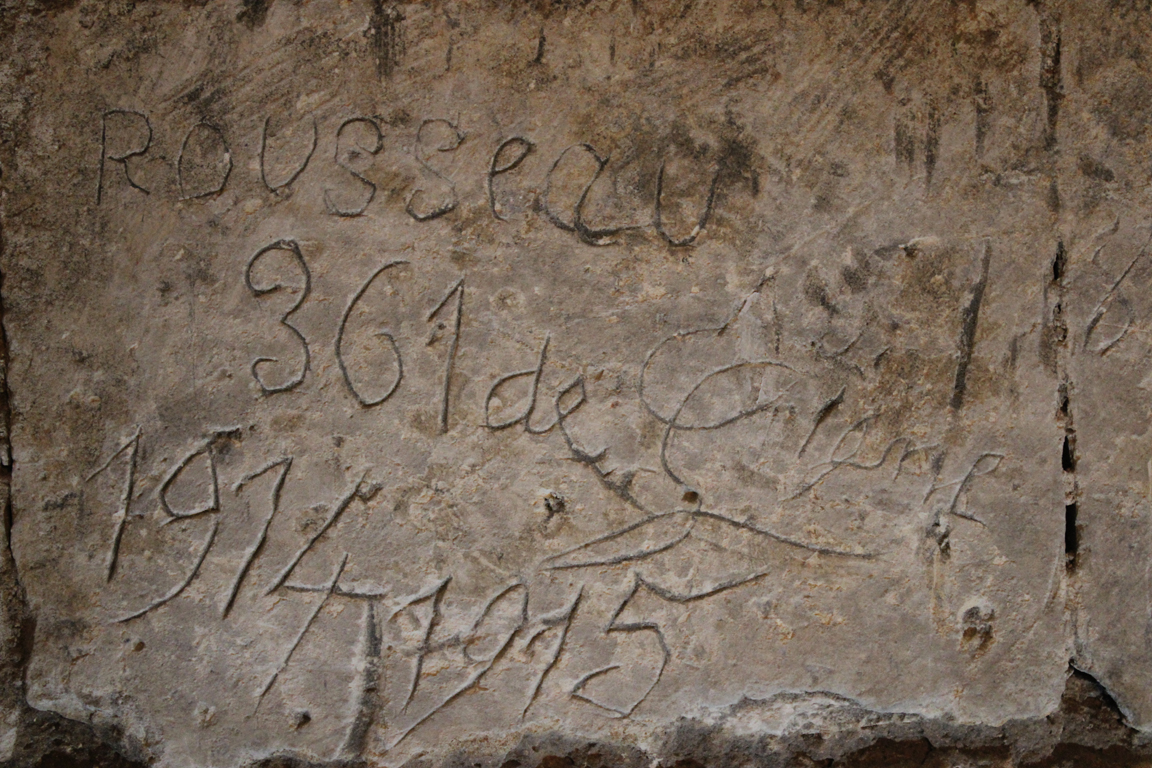 ROUSSeaU
361 de Ligne
1914 1915